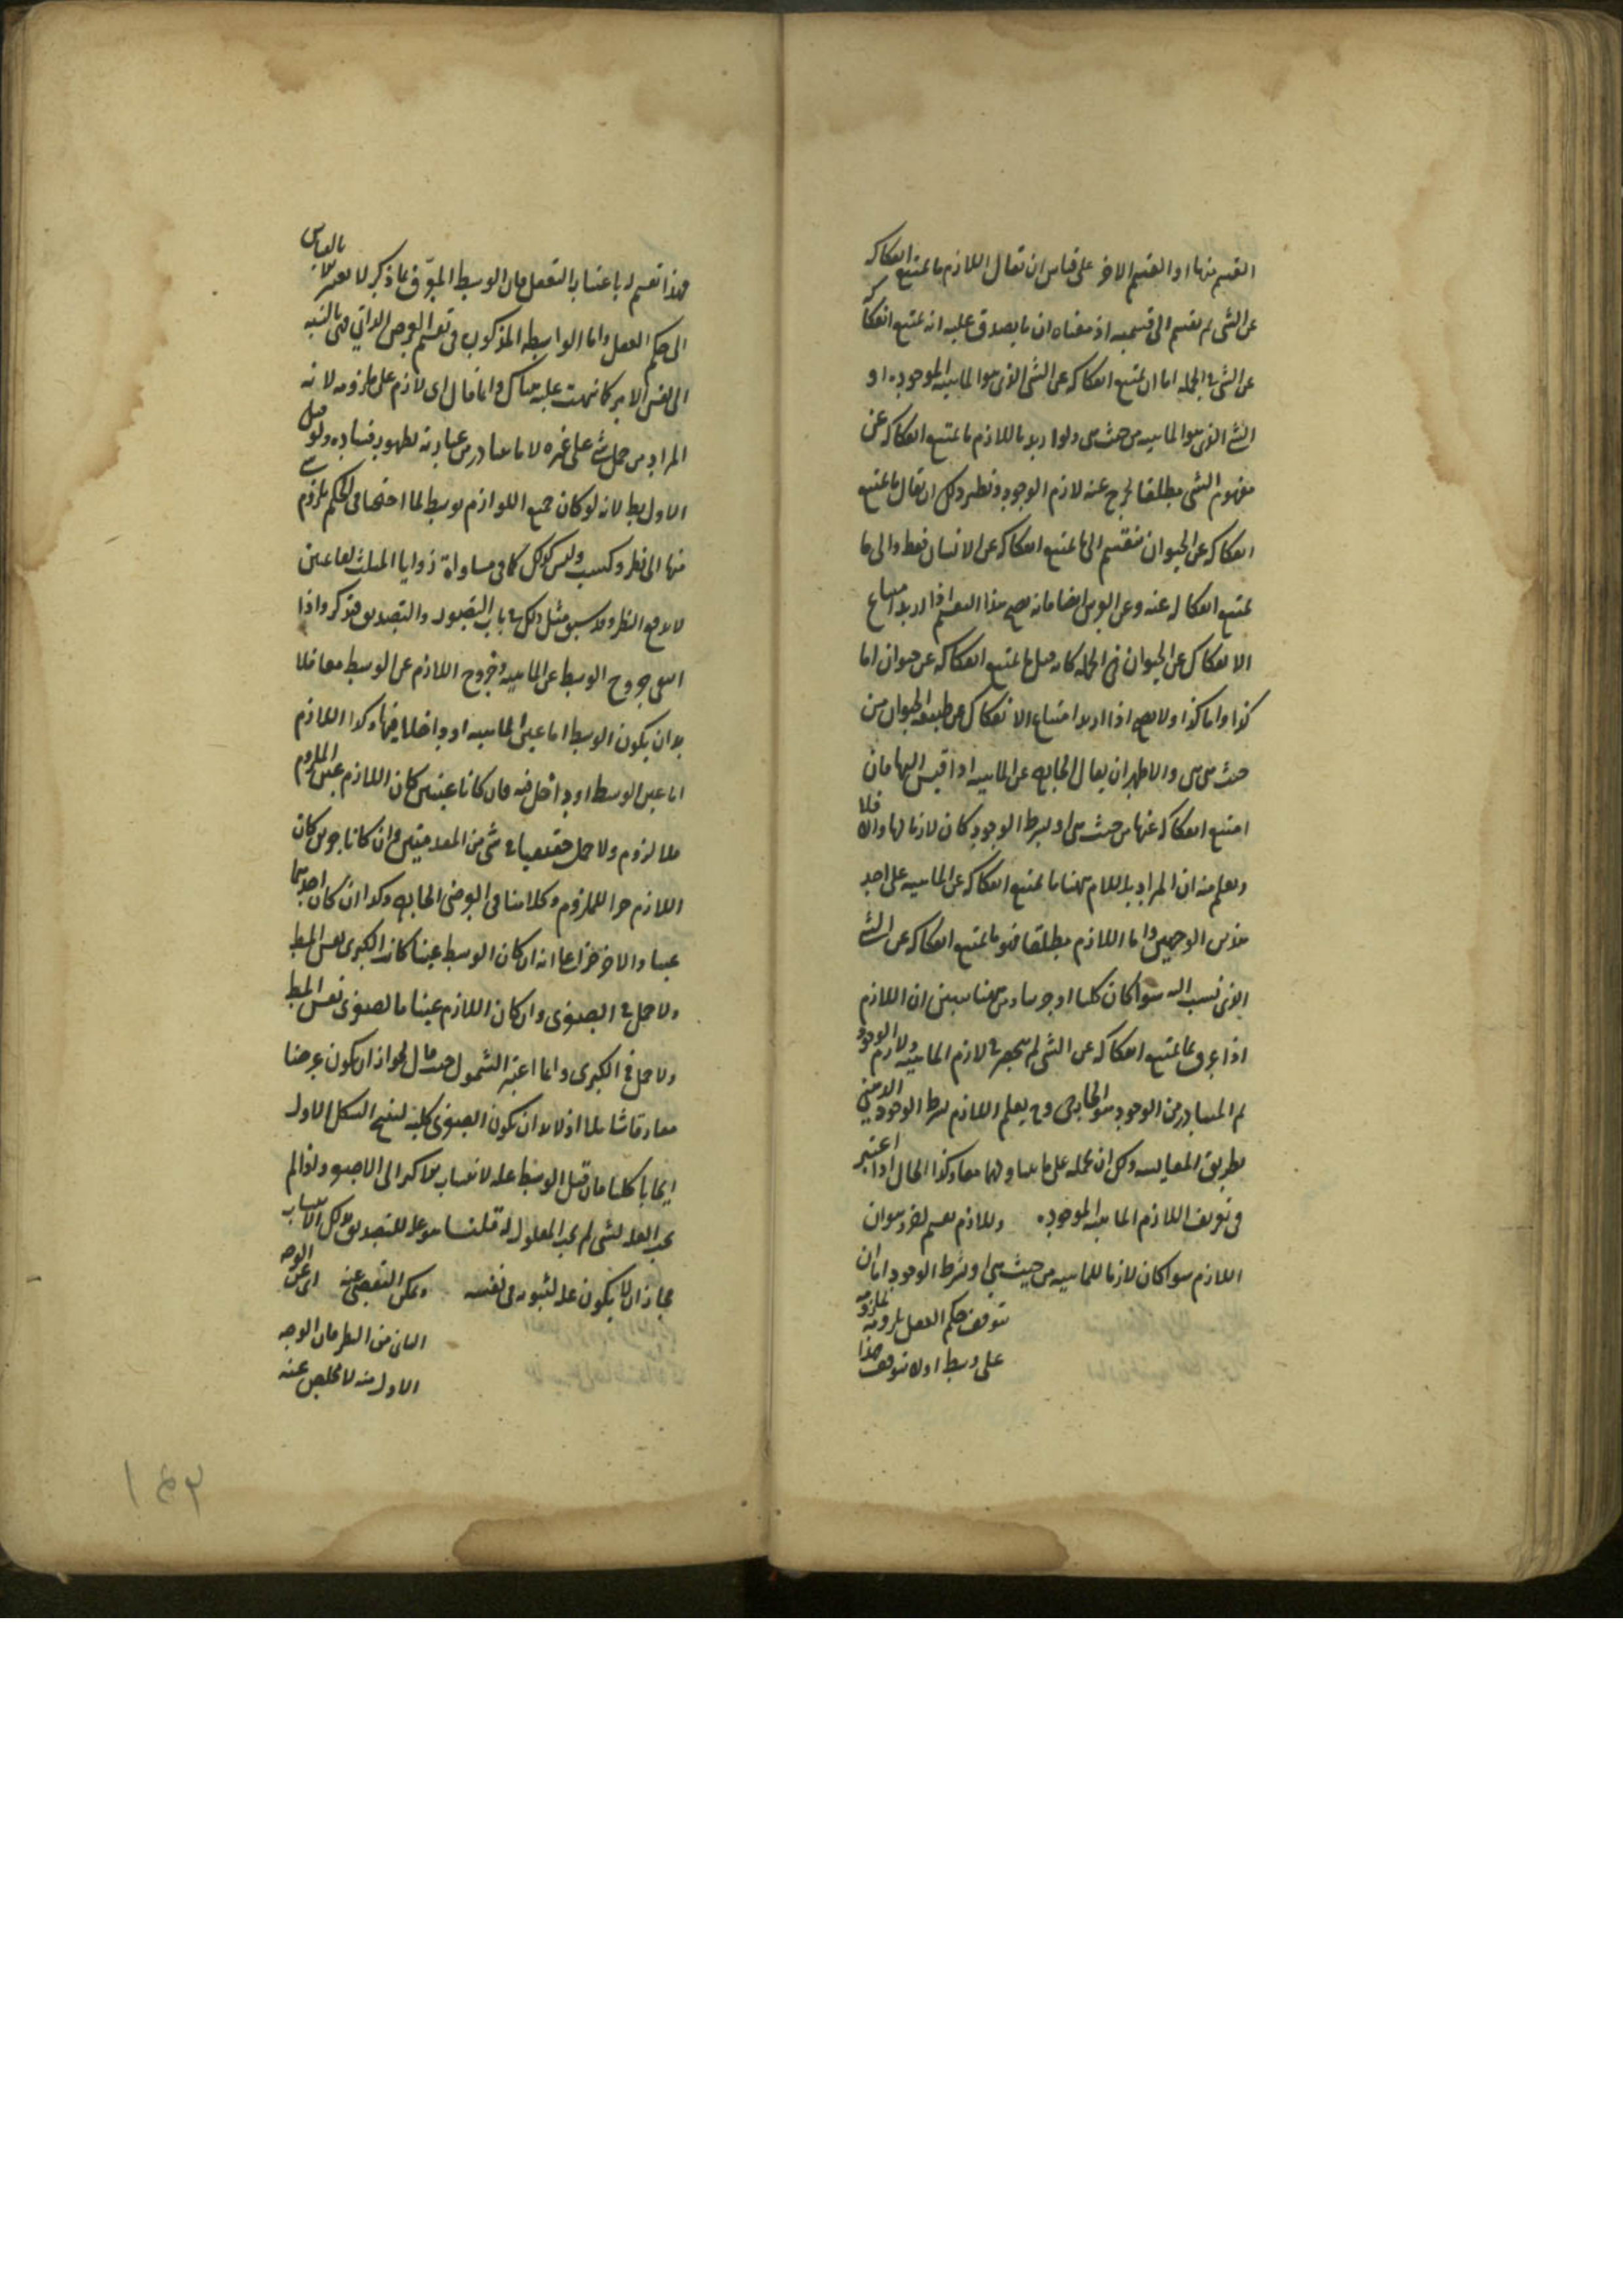 القسم منها او القسم الاخر على قياس ان يقال اللازم ما يمتنع انفكاكه
عن الشى ثم يقسم الى قسميه اذ معناه ان ما يصدق عليه انه يمتنع انفكاكه
عن الشى فى الجملة اما ان يمتنع انفكاكه عن الشى الذى هو الماهية الموجودة او
الشى الذى هو الماهية من حيث هى ولو اريد باللازم ما يمتنع انفكاكه عن
مفهوم الشى مطلقا لخرج عنه لازم الوجود ونظير ذلك ان يقال ما يمتنع
انفكاكه عن الحيوان ينقسم الى ما يمتنع انفكاكه عن الانسان فقط والى ما
يمتنع انفكاكه عنه وعن الفرس ايضا فانه يصح هذا التقسيم اذا اريد امتناع
الانفكاك عن الحيوان فى الجملة كانه قيل ما يمتنع انفكاكه عن حيوان اما
كذا واما كذا ولا يصح اذا اريد امتناع الانفكاك عن طبيعة الحيوان من
حيث هى هى والاظهر ان يقال الخارج عن الماهية اذا قيس اليها فان
امتنع انفكاكه عنها من حيث هى او بشرط الوجود كان لازما لها والا فلا
ويعلم منه ان المراد باللازم ههنا ما يمتنع انفكاكه عن الماهية على احد
هذين الوجهين واما اللازم مطلقا فهو ما يمتنع انفكاكه عن الشى
الذى نسب اليه سواء كان كليا او جزئيا ومن ههنا يتبين ان اللازم
اذا عرف بما يمتنع انفكاكه عن الشى لم ينحصر فى لازم الماهية ولازم الوجود
ثم المتبادر من الوجود هو الخارجى وح يعلم اللازم بشرط الوجود الذهنى
بطريق المقايسة ولك ان تحمله على ما يتناولهما معا وكذا الحال اذا اعتبر
فى تعريف اللازم الماهية الموجودة وللازم تقسيم اخر وهو ان
اللازم سواء كان لازما للماهية من حيث هى او بشرط الوجود اما ان
يتوقف حكم العقل بلزومه لملزومه
على وسط اولا يتوقف هذا
فهذا تقسيم له باعتبار التعقل فان الوسط المعرف بما ذكر لا يعتبر الا بالقياس
الى حكم العقل واما الواسطة المذكورة فى تقسيم العرض الذاتى فهى بالنسبة
الى نفس الامر كما نبهت عليه هناك وانما قال اى لازم على ملزومه لانه
المراد من حمل شى على غيره لا ما يتبادر من عبارته لظهور فساده ولو قيل
الاول بط لانه لو كان جميع اللوازم بوسط لما احتجنا فى الحكم بلزوم شى
منها الى نظر وكسب وليس كذلك كما فى مساواة زوايا المثلث لقائمتين
لا يدفع النظر وقد سبق مثل ذلك فى باب التصور والتصديق فتذكر واذا
انتفى خروج الوسط عن الماهية وخروج اللازم عن الوسط معا فلا
بد ان يكون الوسط اما عين الماهية او داخلا فيها وكذا اللازم
اما عين الوسط او داخل فيه فان كانا عينين كان اللازم عين الملزوم
فلا لزوم ولا حمل حقيقيا فى شى من المقدمتين وان كانا جزئين كان
اللازم جزا للملزوم وكلامنا فى العرضى الخارج وكذا ان كان احدهما
عينا والاخر جزا على انه ان كان الوسط عينا كانت الكبرى نفس المط
ولا حمل فى الصغرى وان كان اللازم عينا فالصغرى نفس المط
ولا حمل فى الكبرى وانما اعتبر الشمول حيث قال لجواز ان يكون عرضا
مفارقا شاملا اذ لا بد ان يكون الصغرى كلية لينتج الشكل الاول
ايجابا كليا فان قيل الوسط علة لانتساب الاكبر الى الاصغر واذا لم
يجب العلة لشى لم يجب المعلول له قلنا هو علة للتصديق بذلك الانتساب
فجاز ان لا يكون علة لثبوته فى نفسه ويمكن التقصى عنه اى عن الوجه
الثانى من النظر فان الوجه
الاول منه لا مخلص عنه